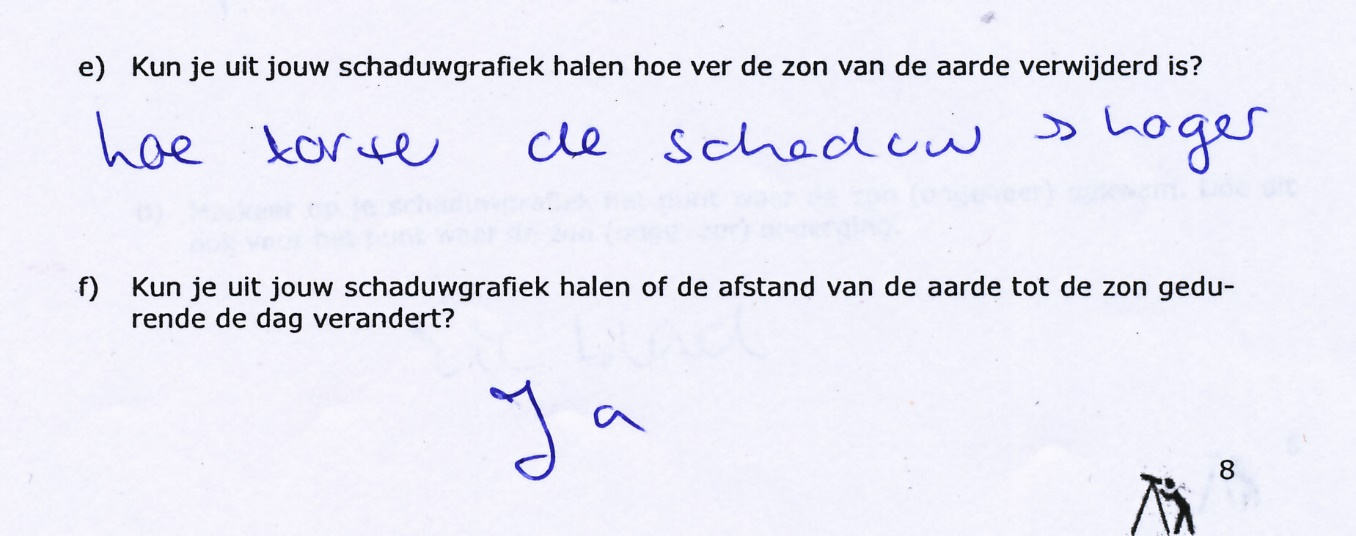 e) Kun je uit jouw schaduwgrafiek halen hoe ver de zon van de aarde verwijderd is?
hoe korte de schaduw hoger
f) Kun je uit jouw schaduwgrafiek halen of de afstand van de aarde tot de zon gedu-
rende de dag verandert?
Ja
8